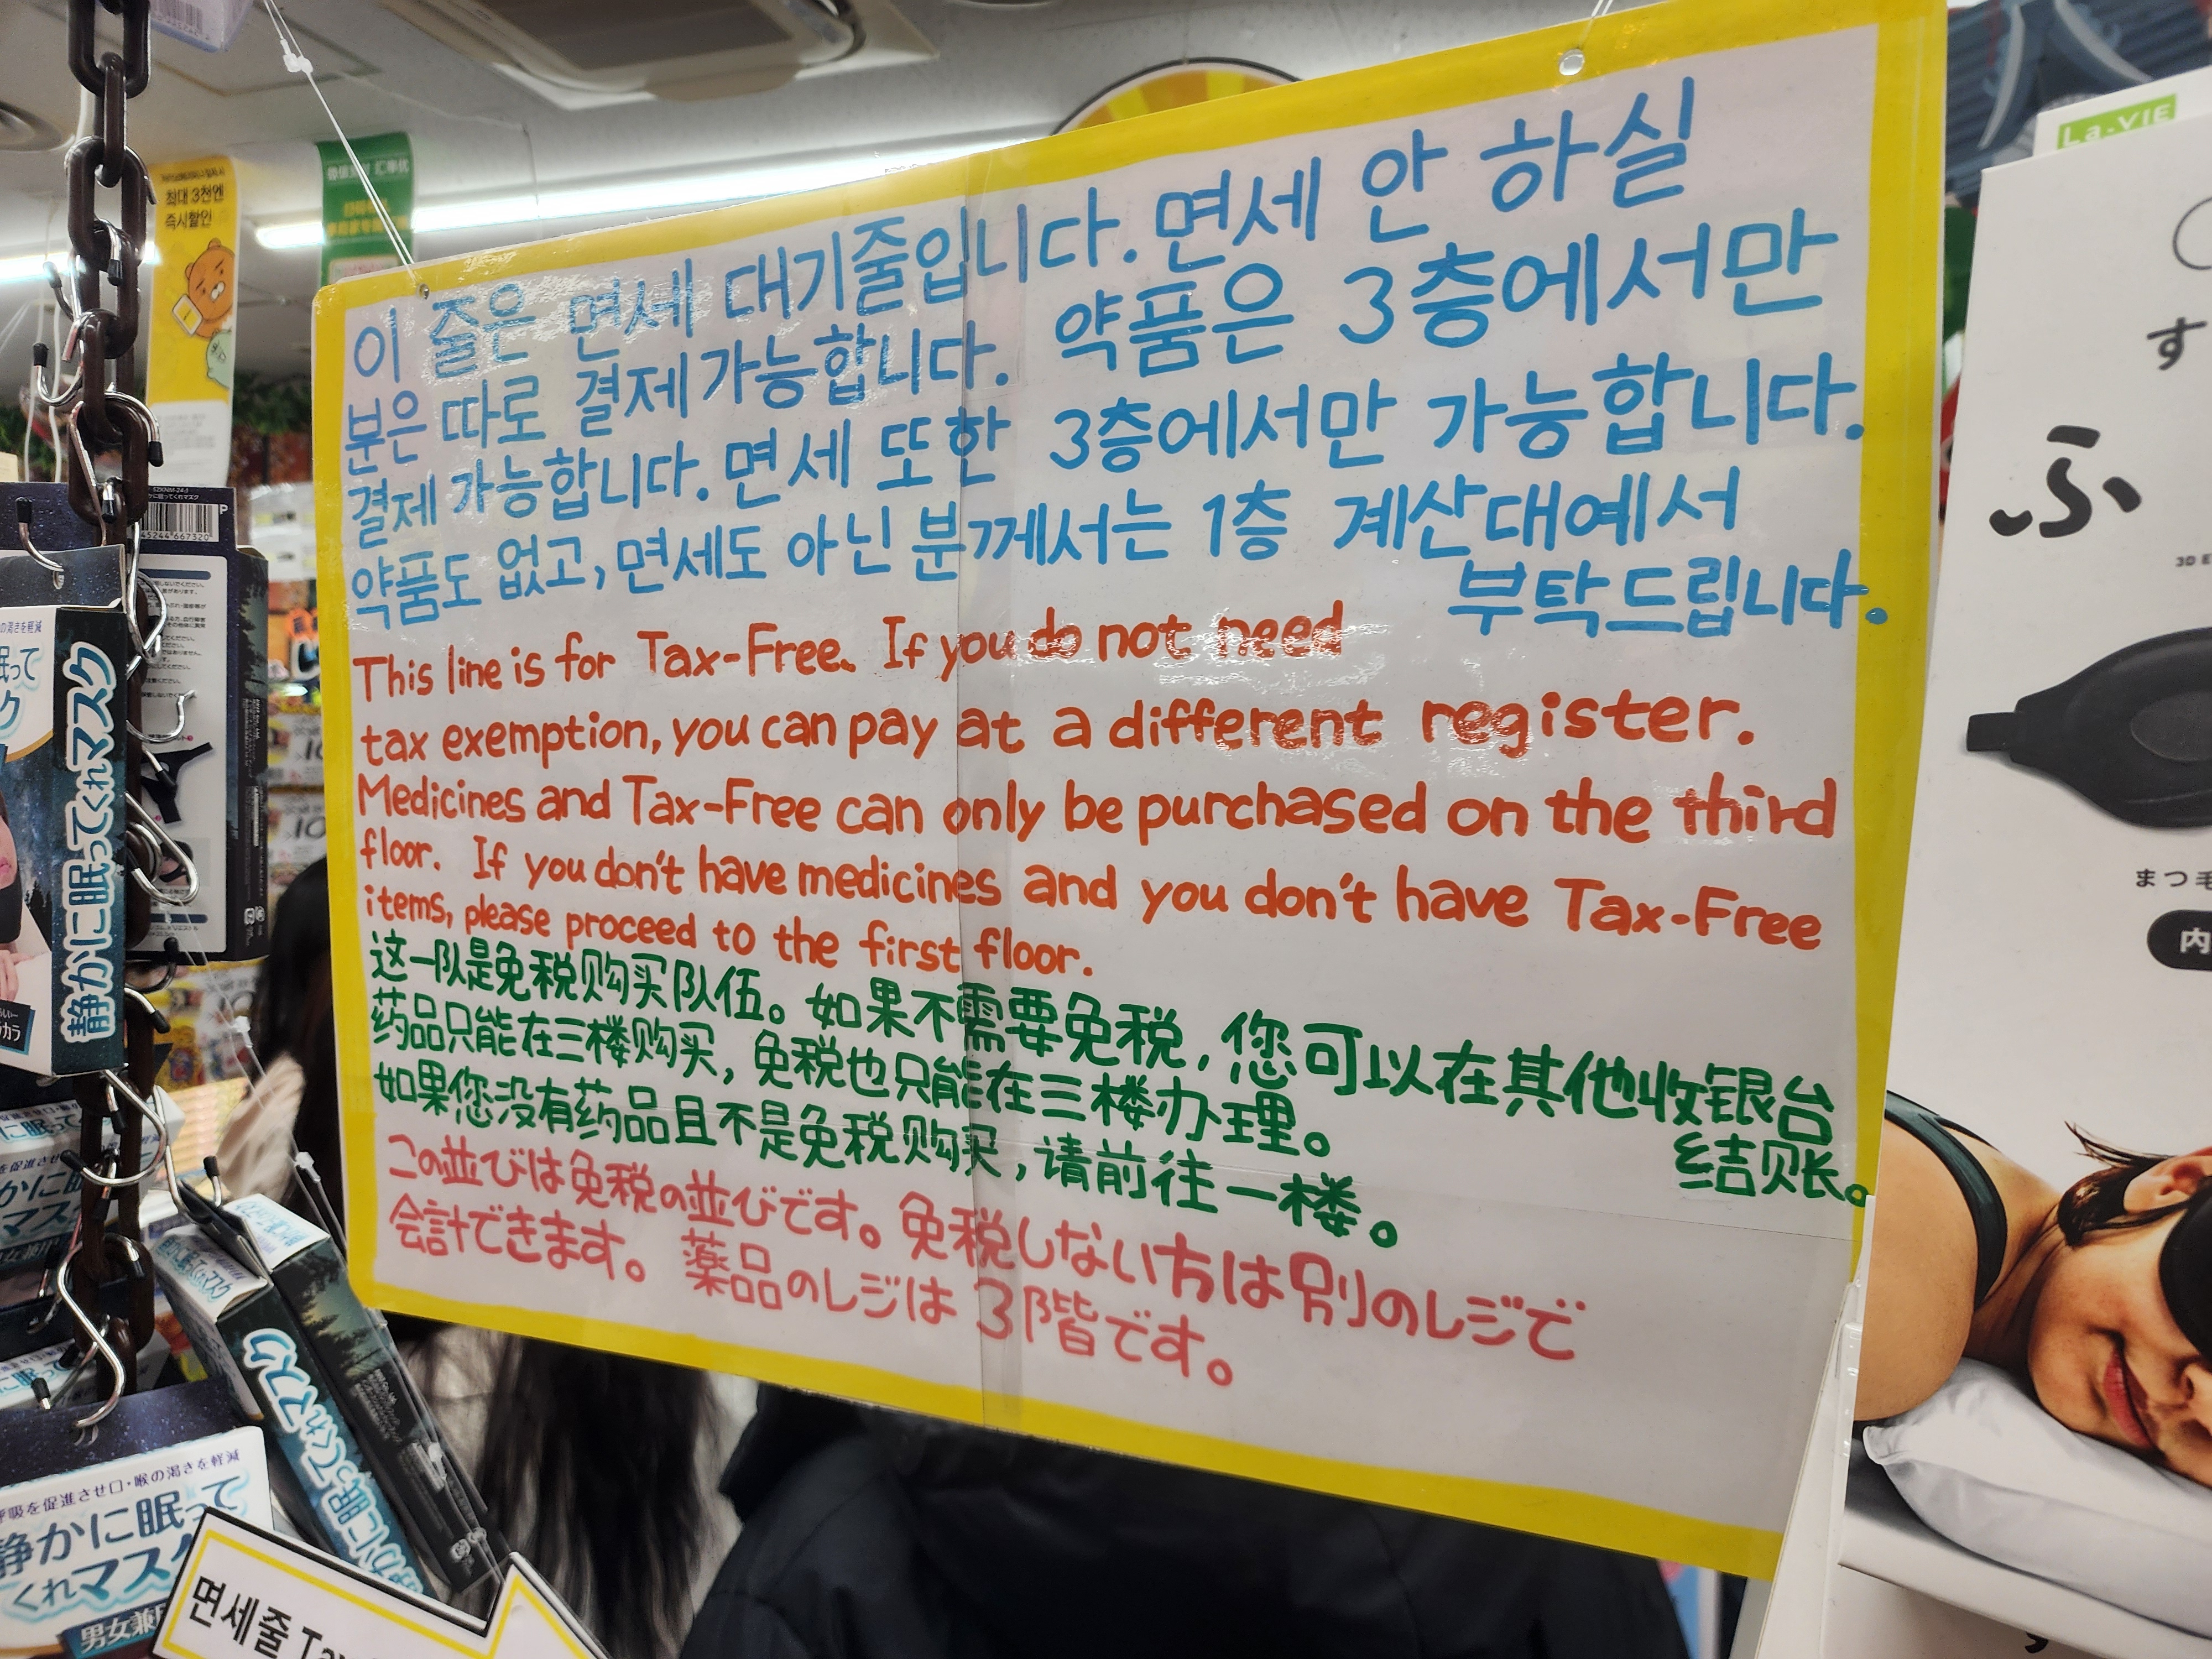 이 줄은 면세 대기줄입니다. 면세 안 하실
분은 따로 결제 가능합니다. 약품은 3층에서만
결제 가능합니다. 면세 또한 3층에서만 가능합니다.
약품도 없고, 면세도 아닌 분께서는 1층 계산대에서
부탁드립니다.
This line is for Tax-Free. If you do not need
tax exemption, you can pay at a different register.
Medicines and Tax-Free can only be purchased on the third
floor. If you don't have medicines and you don't have Tax-Free
items, please proceed to the first floor.
这一队是免税购买队伍。如果不需要免税，您可以在其他收银台
结账。
药品只能在三楼购买，免税也只能在三楼办理。
如果您没有药品且不是免税购买，请前往一楼。
この並びは免税の並びです。免税しない方は別のレジで
会計できます。薬品のレジは3階です。
최대 3천엔
즉시할인
La・VIE
す
ふ
3D E
まつ毛
内
45244 667320
静かに眠ってくれマスク
静かに眠ってくれマスク
呼吸を促進させ口・喉の渇きを軽減
静かに眠って
くれマスク
男女兼
면세줄 Ta